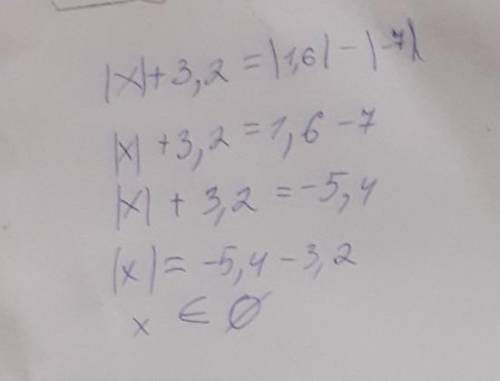 |x|+3,2=|1,6|-|-7|
|x|+3,2=1,6-7
|x|+3,2=-5,4
|x|=-5,4-3,2
x∈∅